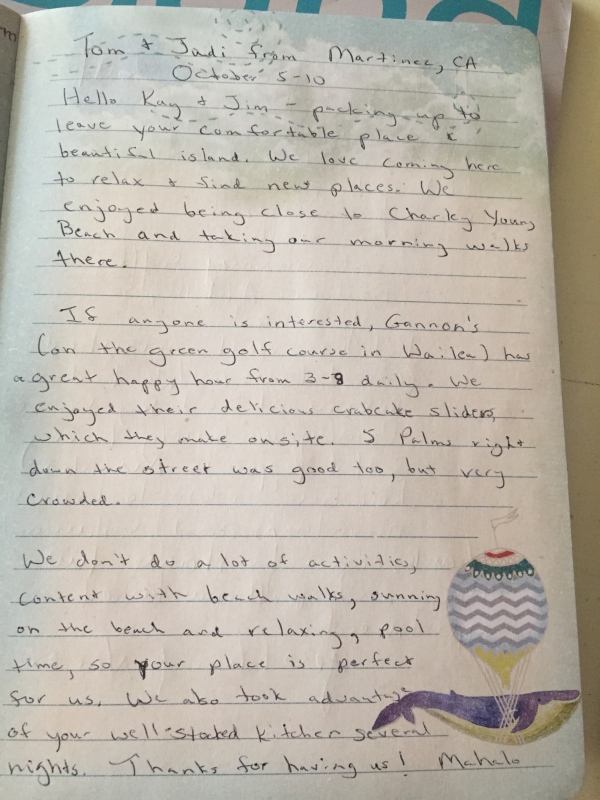 Tom & Jadi from Martinez, CA
October 5-10
Hello Kay & Jim - packing up to
leave your comfortable place &
beautiful island. We love coming here
to relax & find new places. We
enjoyed being close to Charley Young
Beach and taking our morning walks
there.
If anyone is interested, Gannon's
(on the green golf course in Wailea) has
a great happy hour from 3-8 daily. We
enjoyed their delicious crabcake sliders,
which they make onsite. 5 Palms right
down the street was good too, but very
crowded.
We don't do a lot of activities,
content with beach walks, sunning
on the beach and relaxing, pool
time, so your place is perfect
for us. We also took advantage
of your well-stocked kitchen several
nights. Thanks for having us! Mahalo